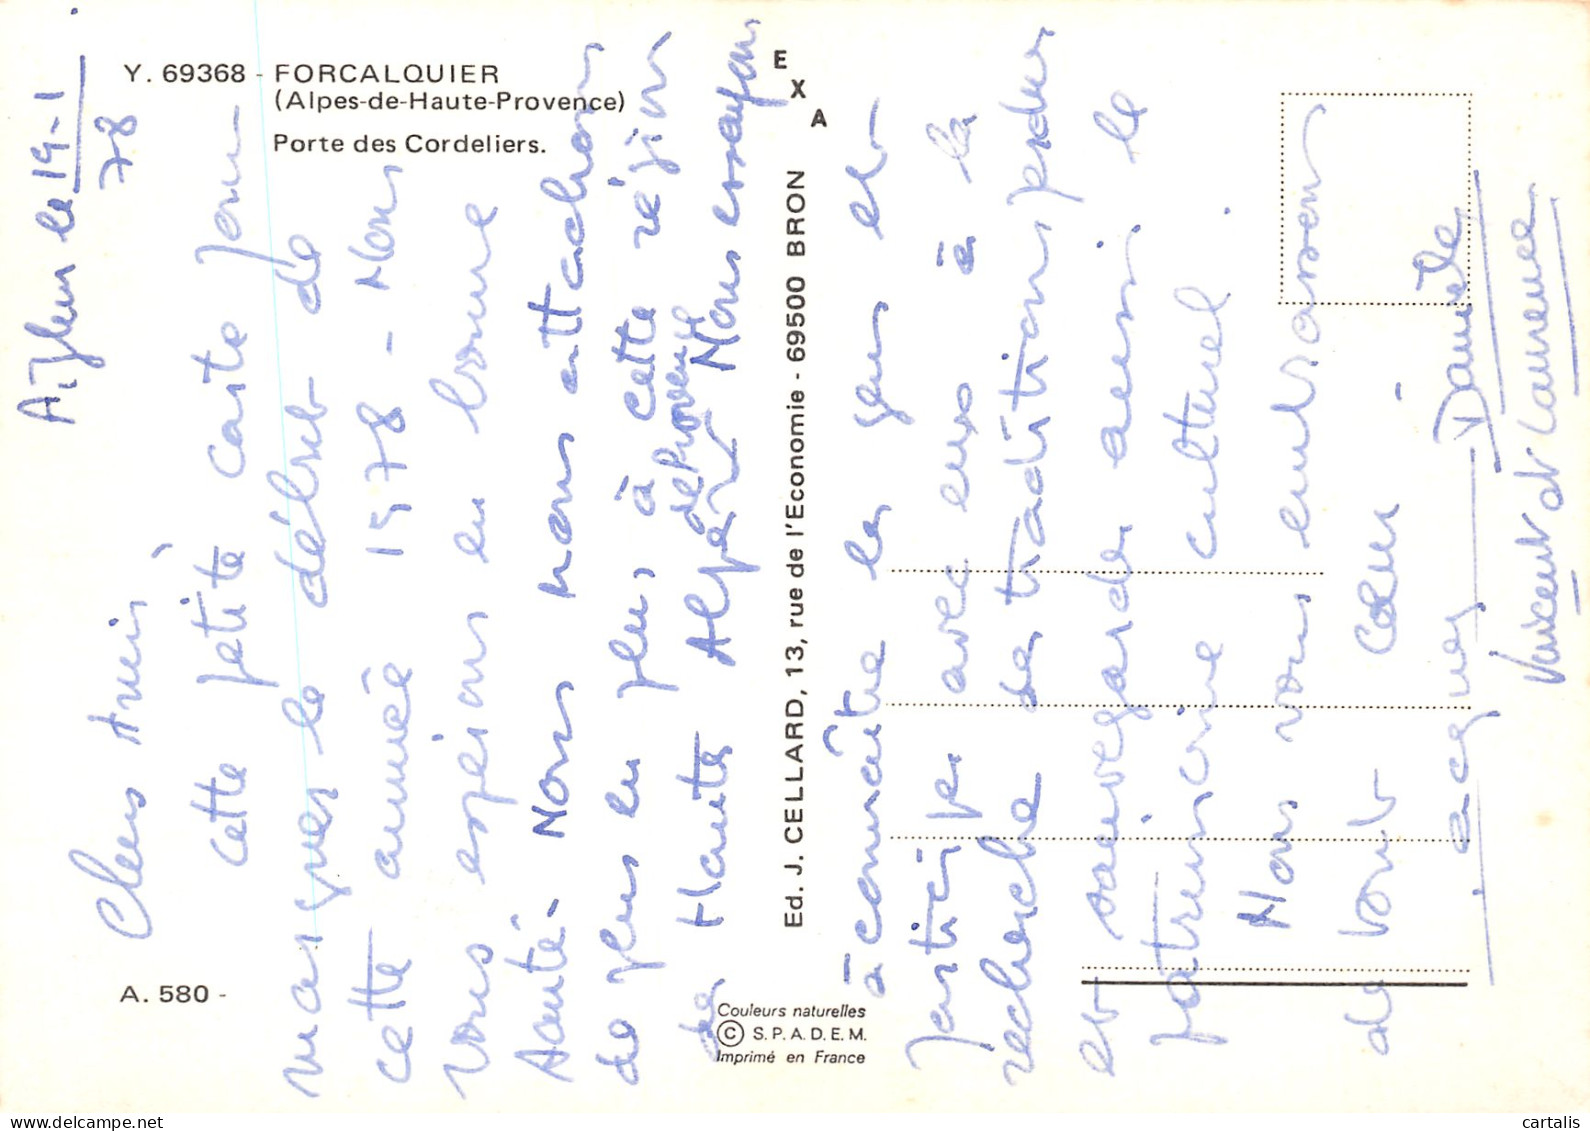 Y. 69368 - FORCALQUIER
(Alpes-de-Haute-Provence)
Porte des Cordeliers.
E
X
A
A. 580 -
Ed. J. CELLARD, 13, rue de l'Economie - 69500 BRON
Couleurs naturelles
© S. P. A. D. E. M.
Imprimé en France
le 19-1
78
Chers Amis,
cette petite carte pour
marquer le début de
cette année 1978 - Nous
vous espérons en bonne
santé. Nous nous attachons
de plus en plus à cette région
de Haute Alpes de Provence Nous essayons
à connaître les gens et
participer avec eux à la
recherche de traditions perdues
et sauvegarder aussi le
patrimoine culturel.
Nous vous embrassons
de tout cœur.
Jacques Danièle
Vincent et Laurence
cartalis